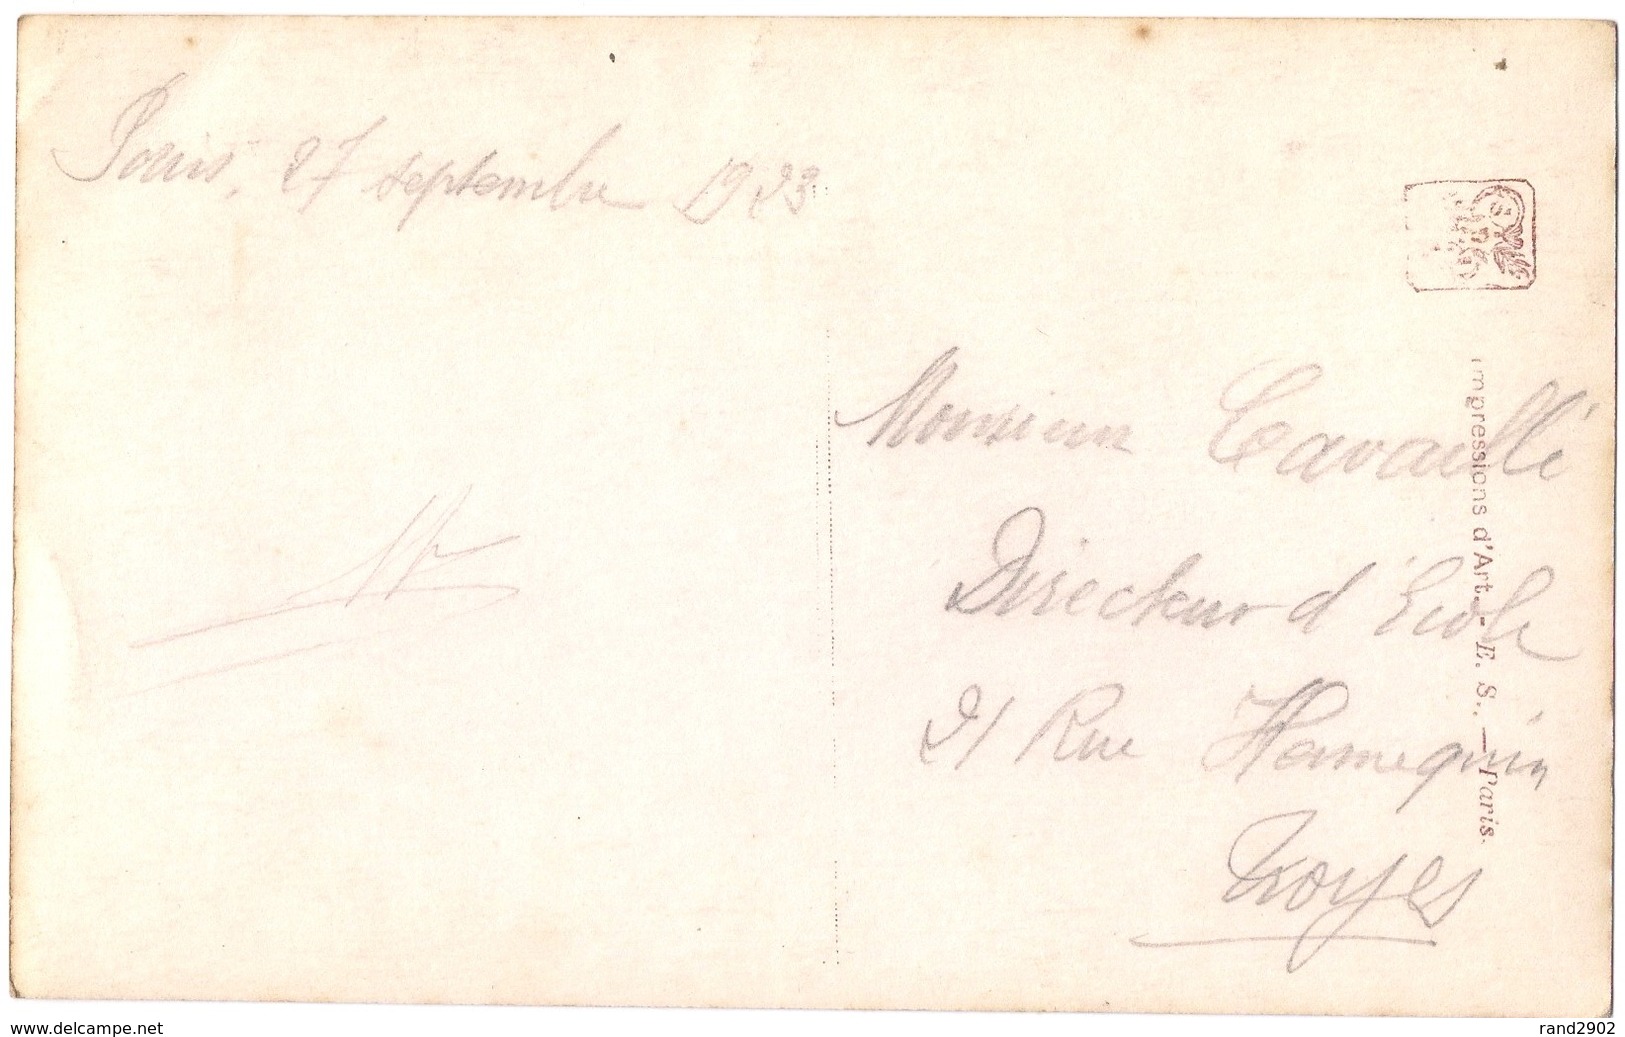 Paris, 27 septembre 1923
Monsieur Cavaillé
Directeur d'École
21 Rue Hennequin
Troyes
Impressions d'Art. - E. S., — Paris.
www.delcampe.net
rand2902